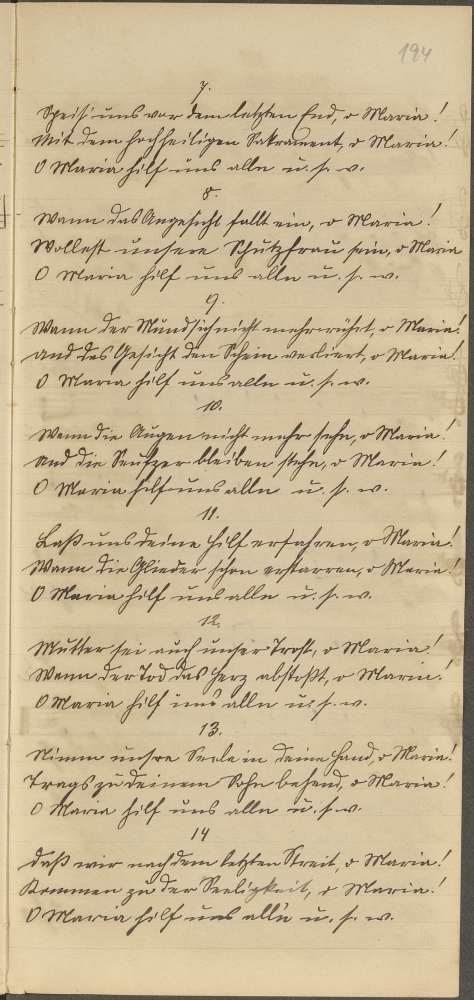 194
7.
Speis' uns vor dem letzten End, o Maria!
Mit dem hochheiligen Sakrament, o Maria!
O Maria hilf uns alln u. s. w.
8.
Wann das Angesicht fallt ein, o Maria!
Wollest unsere Schutzfrau sein, o Maria
O Maria hilf uns alln u. s. w.
9.
Wann der Mund sich nicht mehr rührt, o Maria!
und das Gesicht den Schein verliert, o Maria!
O Maria hilf uns alln u. s. w.
10.
Wann die Augen nicht mehr sehn, o Maria!
und die Seufzer bleiben stehn, o Maria!
O Maria hilf uns alln u. s. w.
11.
Laß uns deine Hilf erfahren, o Maria!
Wann die Glieder schon erstarren, o Maria!
O Maria hilf uns alln u. s. w.
12.
Mutter sei auch unser Trost, o Maria!
Wann der Tod das Herz abstoßt, o Maria!
O Maria hilf uns alln u. s. w.
13.
Nimm unsre Seele in deine Hand, o Maria!
Trags zu deinem Sohn behend, o Maria!
O Maria hilf uns alln u. s. w.
14
daß wir nach dem letzten Streit, o Maria!
Kommen zu der Seeligkeit, o Maria!
O Maria hilf uns all'n u. s. w.